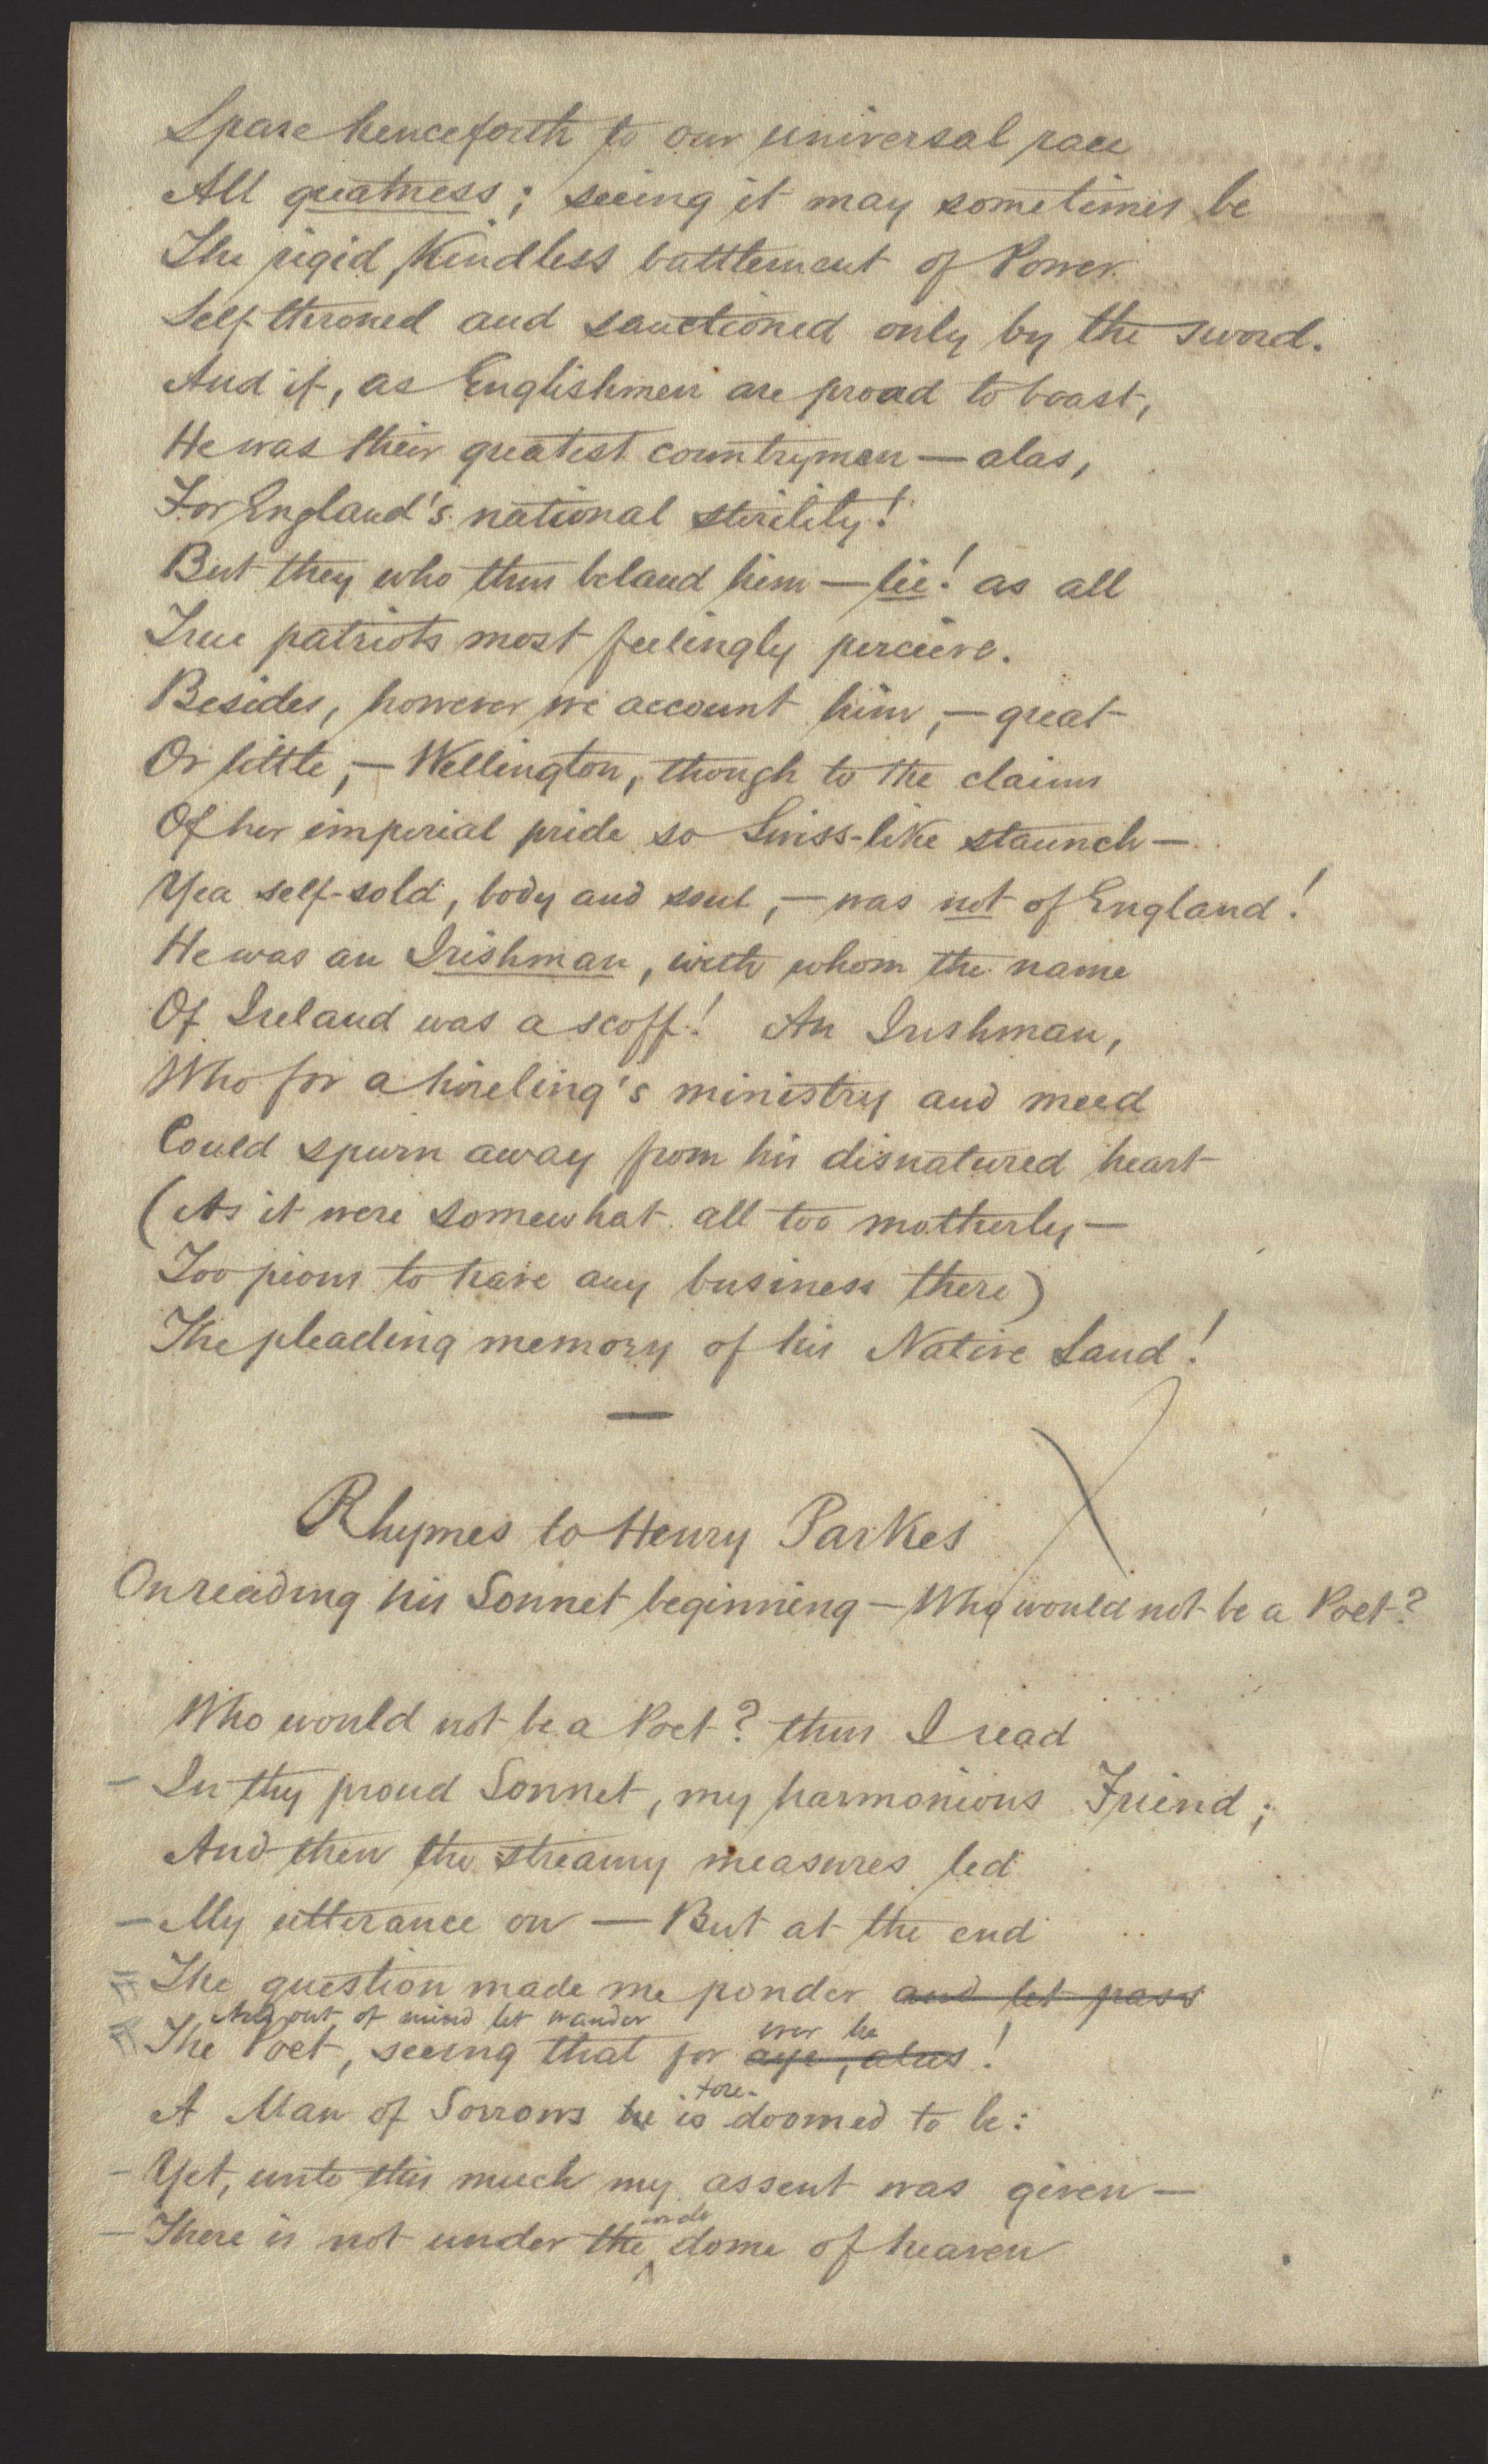 Spare henceforth to our universal race
All greatness; seeing it may sometimes be
The rigid, kindless battlement of Power
Self-throned and sanctioned only by the sword.
And if, as Englishmen are proud to boast,
He was their greatest countryman — alas,
For England's national sterility!
But they who thus belaud him — lie! as all
True patriots most feelingly perceive.
Besides, however we account him, — great
Or little, — Wellington, though to the claims
Of her imperial pride so Swiss-like staunch —
Yea self-sold, body and soul, — was not of England!
He was an Irishman, with whom the name
Of Ireland was a scoff! An Irishman,
Who for a hireling's ministry and meed
Could spurn away from his disnatured heart
(As it were somewhat all too motherly —
Too pious to have any business there)
The pleading memory of his Native Land!
Rhymes to Henry Parkes
On reading his Sonnet beginning — Who would not be a Poet?
Who would not be a Poet? thus I read
— In thy proud Sonnet, my harmonious Friend;
And then the streamy measures led
— My utterance on — But at the end
The question made me ponder and let pass
And out of mind let wander
ever he
The Poet, seeing that for aye, alas!
fore-
A Man of Sorrows he is doomed to be:
— Yet, unto this much my assent was given —
wide
— There is not under the dome of heaven